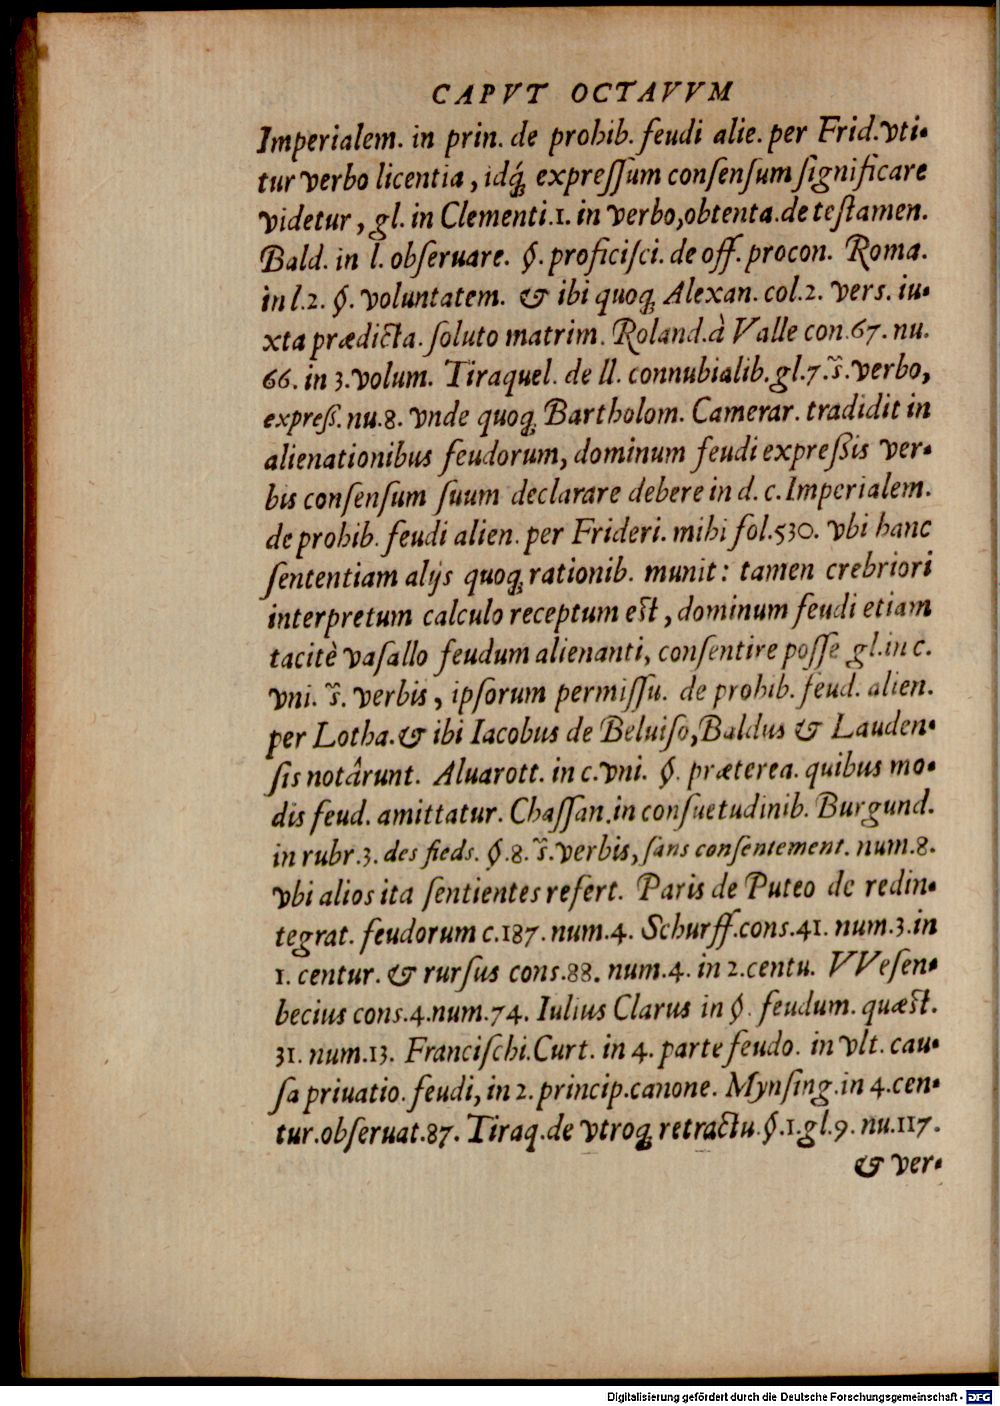 CAPVT OCTAVVM
Imperialem. in prin. de prohib. feudi alie. per Frid. vti-
tur verbo licentia, idq́; expreſſum conſenſum ſignificare
videtur, gl. in Clementi.1. in verbo, obtenta. de teſtamen.
Bald. in l. obſeruare. §. proficiſci. de off. procon. Roma.
in l.2. §. voluntatem. & ibi quoq; Alexan. col.2. verſ. iu-
xta prædicta. ſoluto matrim. Roland. à Valle con.67. nu.
66. in 3. volum. Tiraquel. de ll. connubialib. gl.7. ṽs. verbo,
expreß. nu.8. vnde quoq; Bartholom. Camerar. tradidit in
alienationibus feudorum, dominum feudi expreßis ver-
bis conſenſum ſuum declarare debere in d. c. Imperialem.
de prohib. feudi alien. per Frideri. mihi fol.530. vbi hanc
ſententiam alijs quoq; rationib. munit: tamen crebriori
interpretum calculo receptum eſt, dominum feudi etiam
tacitè vaſallo feudum alienanti, conſentire poſſe gl. in c.
vni. s̃. verbis, ipſorum permiſſu. de prohib. feud. alien.
per Lotha. & ibi Iacobus de Beluiſo, Baldus & Lauden-
ſis notârunt. Aluarott. in c. vni. §. præterea. quibus mo-
dis feud. amittatur. Chaſſan. in conſuetudinib. Burgund.
in rubr.3. des fieds. §.8. s̃. verbis, ſans conſentement. num.8.
vbi alios ita ſentientes refert. Paris de Puteo de redin-
tegrat. feudorum c.187. num.4. Schurff. conſ.41. num.3. in
1. centur. & rurſus conſ.88. num.4. in 2. centu. VVeſen-
becius conſ.4. num.74. Iulius Clarus in §. feudum. quæſt.
31. num.13. Franciſchi. Curt. in 4. parte feudo. in vlt. cau-
ſa priuatio. feudi, in 2. princip. canone. Mynſing. in 4. cen-
tur. obſeruat.87. Tiraq. de vtroq; retractu. §.1. gl.9. nu.117.
& ver-
Digitalisierung gefördert durch die Deutsche Forschungsgemeinschaft - DFG